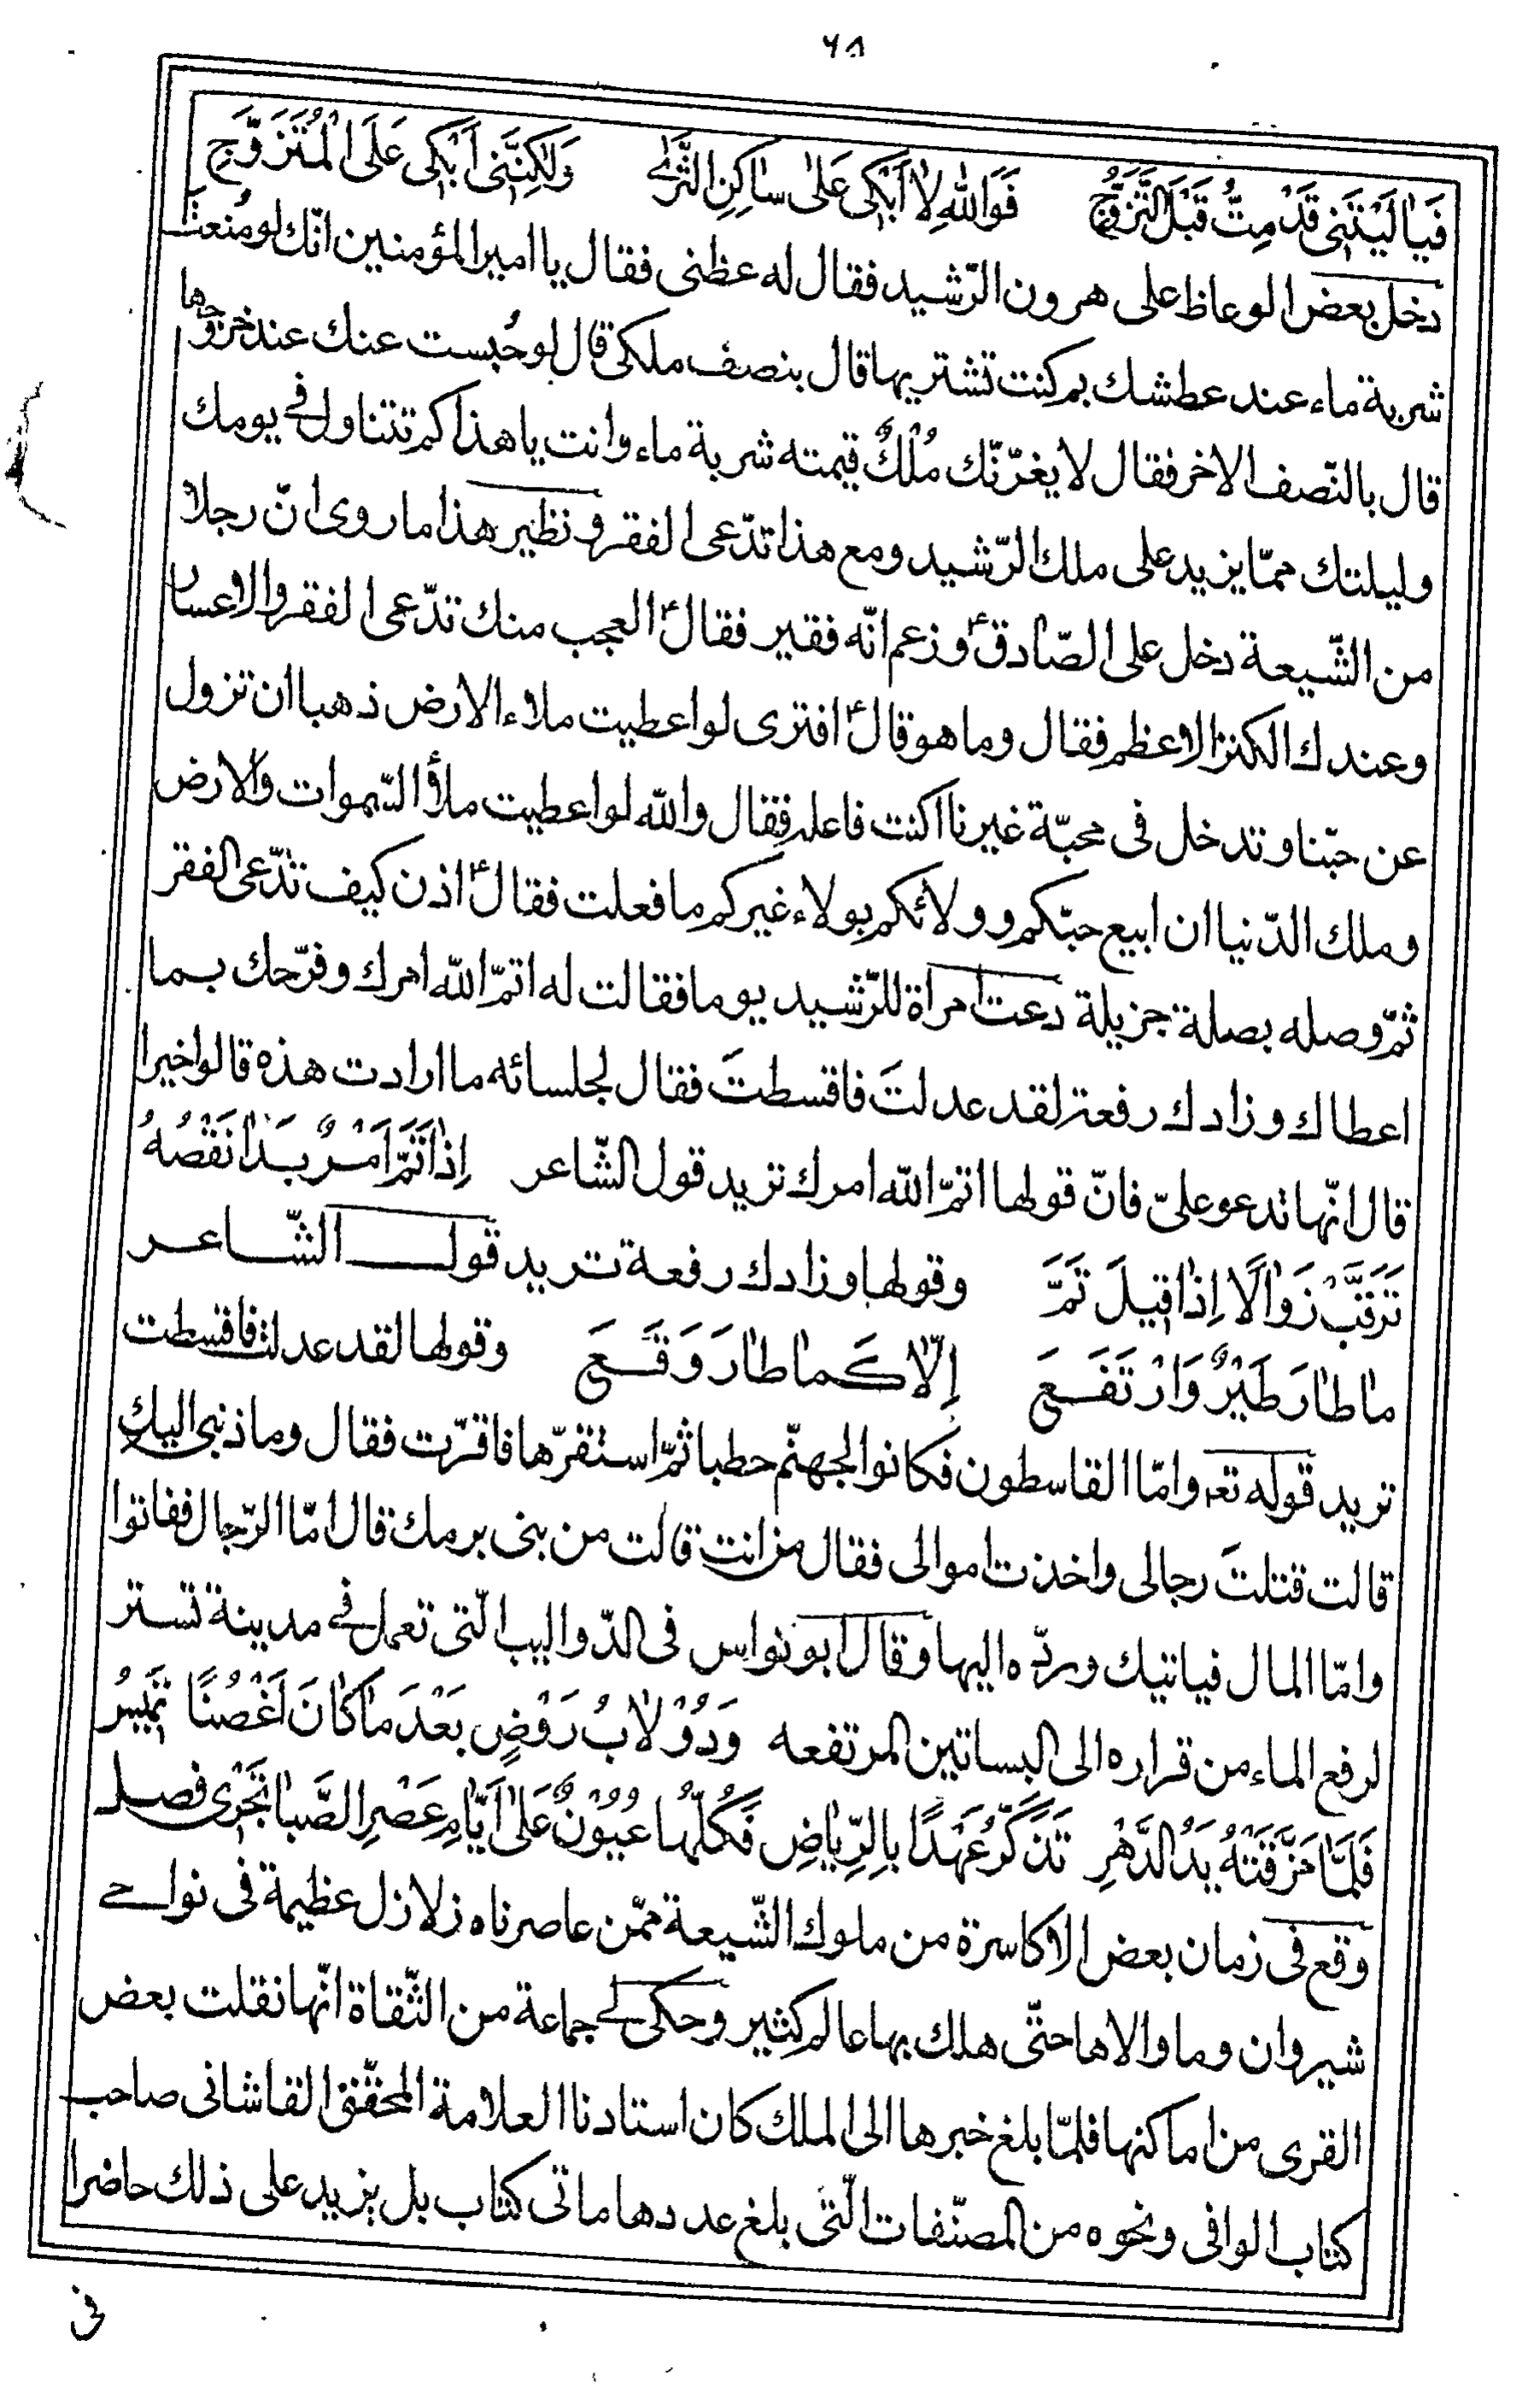 ٦٨
فَيٰا لَيْتَنى قَدْ مِتُّ قَبْلَ التَّزَوُّجِ فَوَاللّٰهِ لاٰ اَبْكى عَلىٰ سٰاكِنِ الثَّرٰى وَلٰكِنَّنى اَبْكى عَلَى الْمُتَزَوِّجِ
دخل بعض الوعاظ على هرون الرّشيد فقال له عظنى فقال يا امير المؤمنين انّك لو مُنعتَ
شربة ماء عند عطشك بم كنت تشتريها قال بنصف ملكى قال لو حُبست عنك عند خروجها
قال بالنّصف الاخر فقال لا يغرّنّك مُلْكٌ قيمته شربة ماء وانت يا هذا كم تتناول فى يومك
وليلتك ممّا يزيد على ملك الرّشيد ومع هذا تدّعى الفقر ونظير هذا ما روى انّ رجلا
من الشّيعة دخل على الصّادق ع وزعم انّه فقير فقال ع العجب منك تدّعى الفقر والاعسار
وعندك الكنز الاعظم فقال وما هو قال ع افترى لو اعطيت ملاء الارض ذهبا ان تزول
عن حبّنا وتدخل فى محبّة غيرنا اكنت فاعله فقال والله لو اعطيت ملأ السّموات والارض
وملك الدّنيا ان ابيع حبّكم وولائكم بولاء غيركم ما فعلت فقال ع اذن كيف تدّعى الفقر
ثمّ وصله بصلة جزيلة دعت امراة للرّشيد يوما فقالت له اتمّ الله امرك وفرّحك بما
اعطاك وزادك رفعة لقد عدلتَ فاقسطتَ فقال لجلسائه ما ارادت هذه قالوا خيرا
قال انّها تدعو علىّ فانّ قولها اتمّ الله امرك تريد قول الشّاعر اِذٰا تَمَّ اَمْرٌ بَدٰا نَقْصُهُ
تَرَقَّبْ زَوٰالًا اِذٰا قيلَ تَمَّ وقولها وزادك رفعة تريد قول الشّاعر
مٰا طٰارَ طَيْرٌ وَارْتَفَعَ اِلّاٰ كَمٰا طٰارَ وَقَعَ وقولها لقد عدلت فاقسطت
تريد قوله تعـ وامّا القاسطون فكانوا لجهنّم حطبا ثمّ استقرّها فاقرّت فقال وما ذنبى اليك
قالت قتلتَ رجالى واخذت اموالى فقال من انت قالت من بنى برمك قال امّا الرّجال ففاتوا
وامّا المال فياتيك وردّه اليها وقال ابو نواس فى الدّواليب الّتى تعمل فى مدينة تستر
لرفع الماء من قراره الى البساتين المرتفعه وَدُوْلاٰبُ رَوْضٍ بَعْدَ مٰا كٰانَ اَغْصُنًا تَميسُ
فَلَمّٰا مَزَّقَتْهُ يَدُ الدَّهْرِ تَذَكَّرَ عَهْدًا بِالرِّيٰاضِ فَكُلُّهٰا عُيُوْنٌ عَلىٰ اَيّٰامِ عَصْرِ الصَّبٰا تَجْرى فصل
وقع فى زمان بعض الاكاسرة من ملوك الشّيعة ممّن عاصرناه زلازل عظيمة فى نواحى
شيروان وما والاها حتّى هلك بها عالم كثير وحكى لى جماعة من الثّقاة انّها نقلت بعض
القرى من اماكنها فلمّا بلغ خبرها الى الملك كان استادنا العلامة المحقّق القاشانى صاحب
كتاب الوافى ونحوه من المصنّفات الّتى بلغ عددها ماتى كتاب بل يزيد على ذلك حاضرا
فى